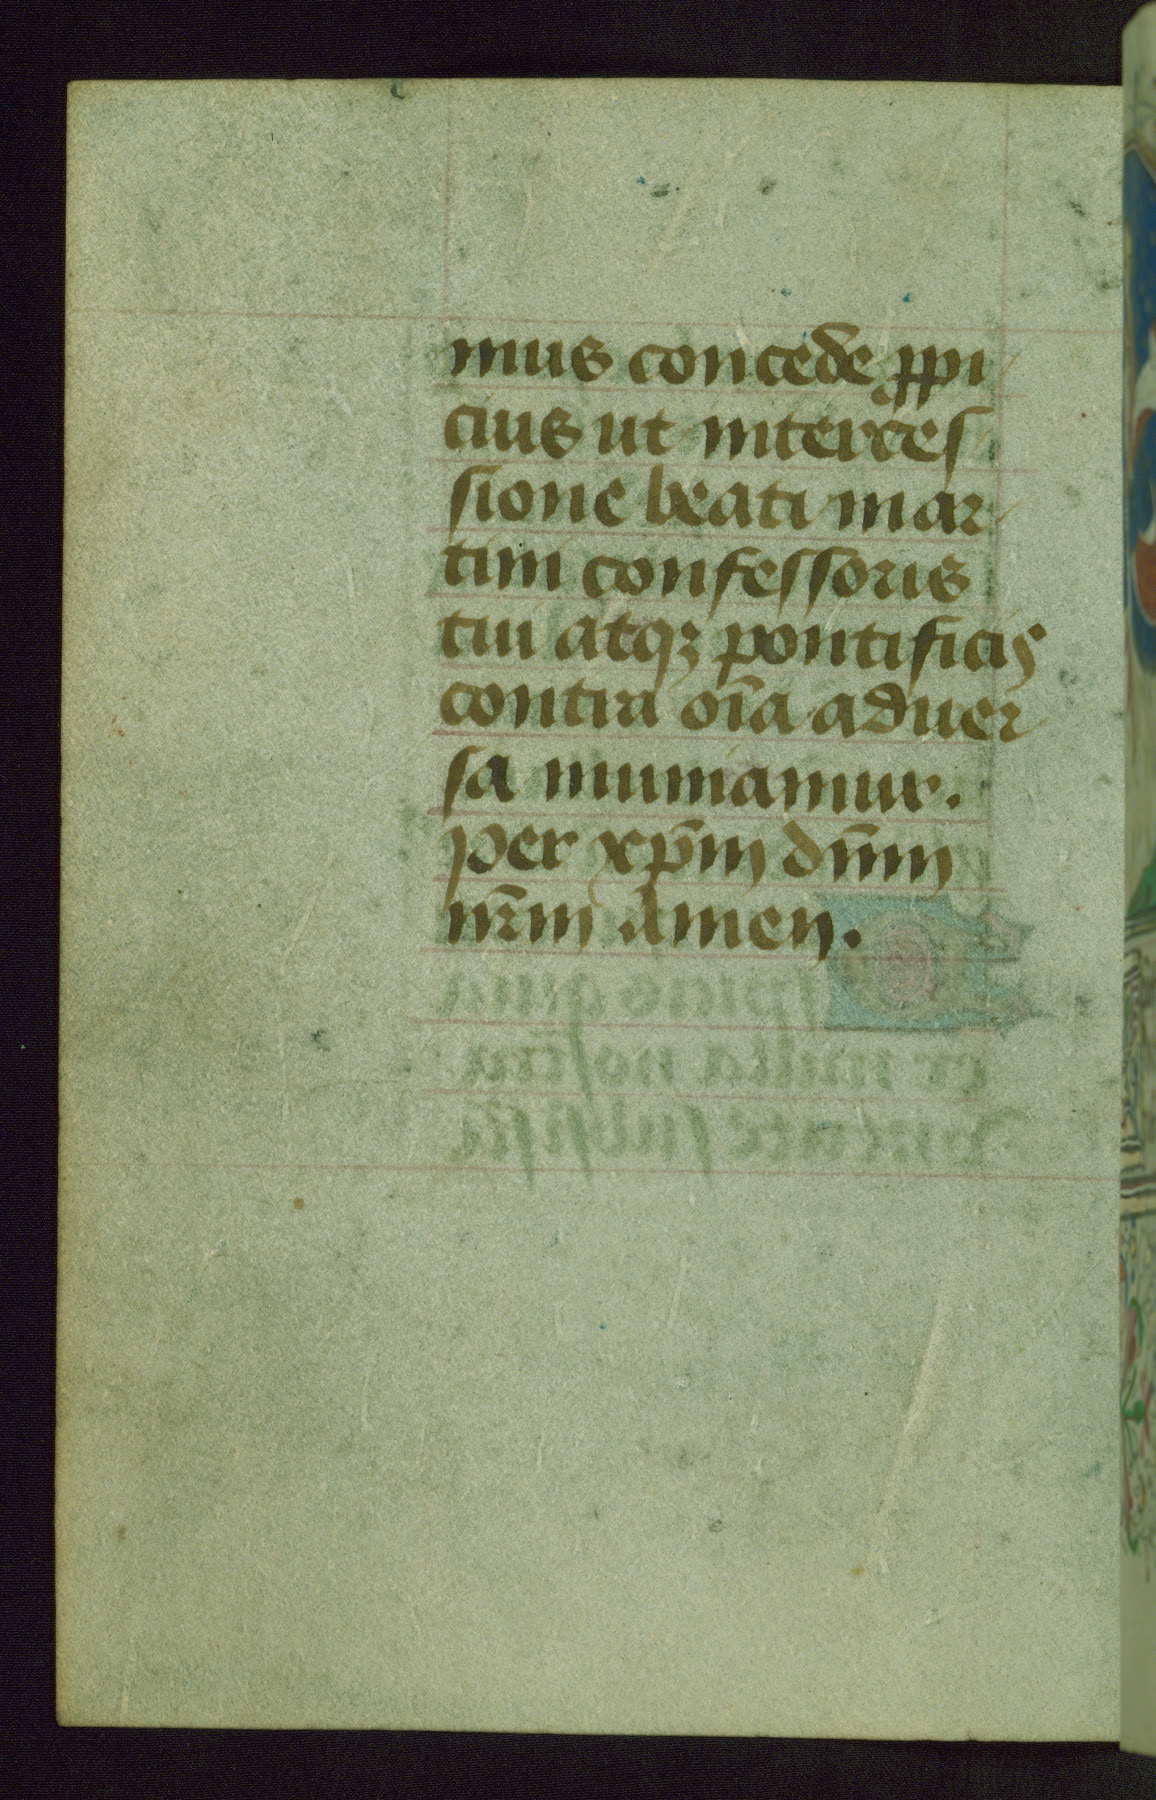 mus concede ꝓpi
cius ut interces
sione beati mar
tini confessoris
tui atqꝫ pontificis
contra oı̄a aduer
sa muniamur.
per xp̄m dn̄m
nr̄m Amen.